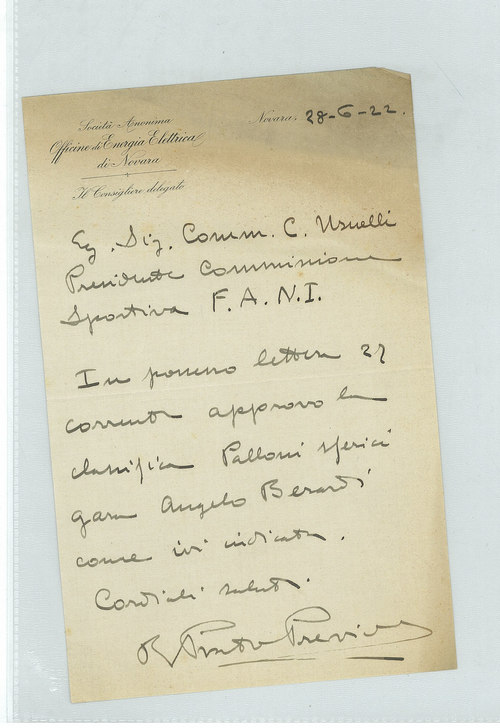 Società Anonima
Officine di Energia Elettrica
di Novara
Il Consigliere delegato
Novara, 28-6-22.
Eg. Sig. Comm. C. Usuelli
Presidente Commissione
Sportiva F.A.N.I.
In possesso lettera 27
corrente approvo la
classifica Palloni sferici
gara Angelo Berardi
come ivi indicata.
Cordiali saluti.